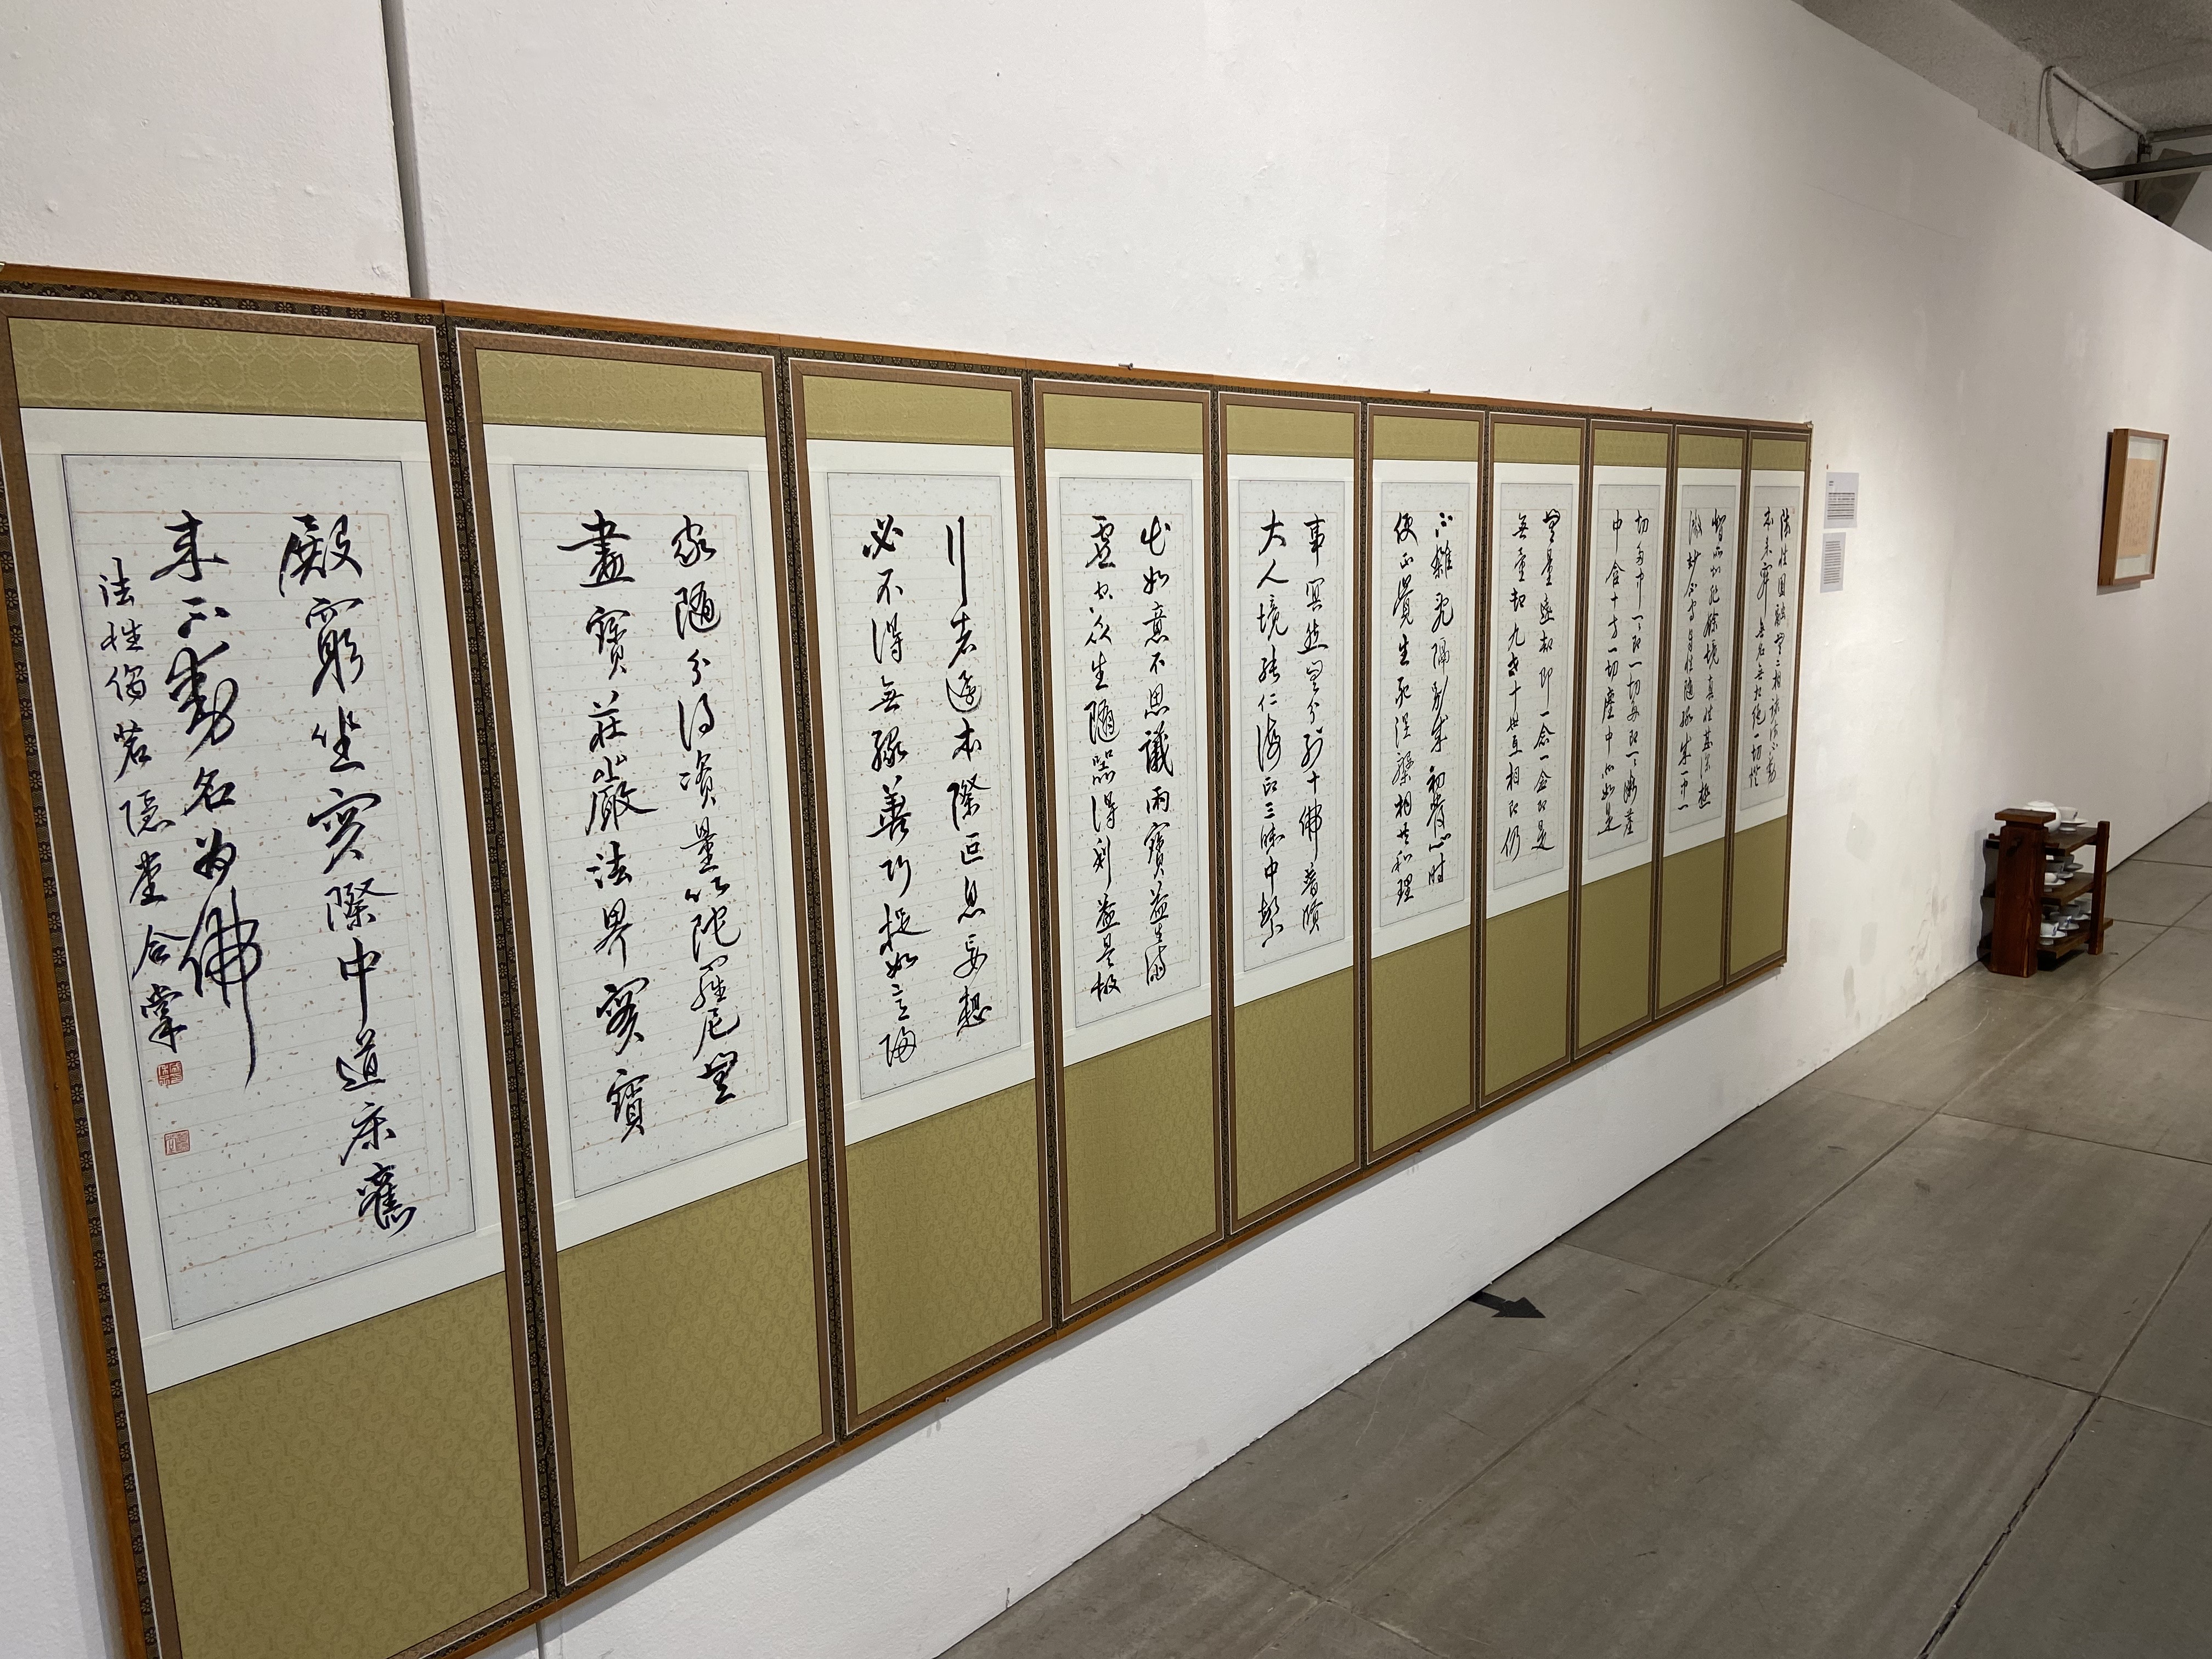 法性圓融無二相諸法不動
本来寂無名無相絶一切證
智所知非餘境真性甚深極
微妙不守自性隨緣成一中一
切多中一一即一切多即一一微塵
中含十方一切塵中亦如是
無量遠劫即一念一念即是
無量劫九世十世互相即仍
不雜亂隔別成初發心時
便正覺生死涅槃相共和理
事冥然無分別十佛普賢
大人境能仁海印三昧中繁
出如意不思議雨寶益生滿
虛空众生隨器得利益是故
行者還本際叵息妄想
必不得無緣善巧捉如意歸
家隨分得資量以陀羅尼無
盡寶莊嚴法界實寶
殿窮坐實際中道床舊
来不動名為佛
法性偈茗隱堂合掌